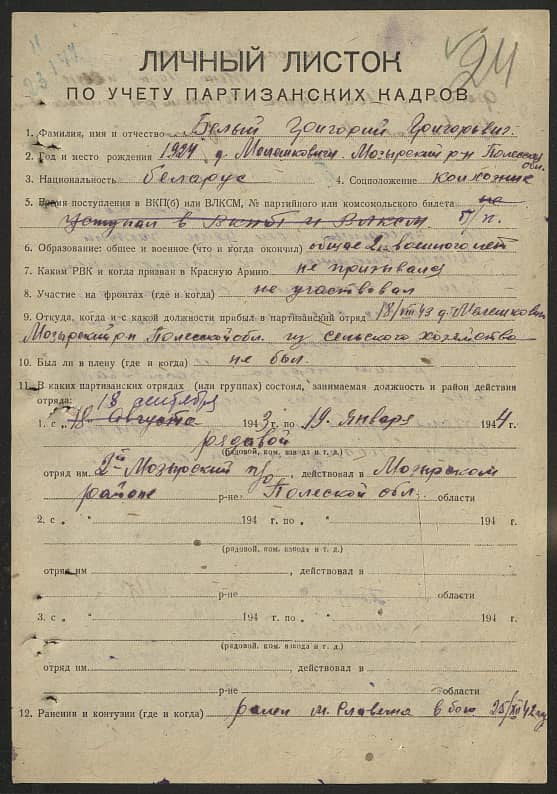 24
ЛИЧНЫЙ ЛИСТОК
ПО УЧЕТУ ПАРТИЗАНСКИХ КАДРОВ
1. Фамилия, имя и отчество Белый Григорий Григорьевич.
2. Год и место рождения 1924 д. Мелешковичи. Мозырский р-н Полесской обл.
3. Национальность беларус 4. Соцположение колхозник
5. Время поступления в ВКП(б) или ВЛКСМ, № партийного или комсомольского билета не
в ВКПб и ВЛКСМ б/п.
6. Образование: общее и военное (что и когда окончил) общее военного нет
7. Каким РВК и когда призван в Красную Армию не призывался
8. Участие на фронтах (где и когда) не участвовал
9. Откуда, когда и с какой должности прибыл в партизанский отряд 18/VIII 43 д. Мелешковичи
Мозырский р-н Полесской обл. из сельского хозяйства
10. Был ли в плену (где и когда) не был.
11. В каких партизанских отрядах (или группах) состоял, занимаемая должность и район действия
отряда: 18 сентября
1. с „18" Августа 1943 г. по „19" Января 1944 г.
рядовой
(рядовой, ком. взвода и т. д.)
отряд им 2й Мозырский п/о, действовал в Мозырском
районе р-не Полеской обл. области
2. с „ " 194 г. по „ " 194 г.
(рядовой, ком. взвода и т. д.)
отряд им , действовал в
р-не области
3. с „ " 194 г. по „ " 194 г.
(рядовой, ком. взвода и т. д.)
отряд им , действовал в
р-не области
12. Ранения и контузии (где и когда) ранен в бою